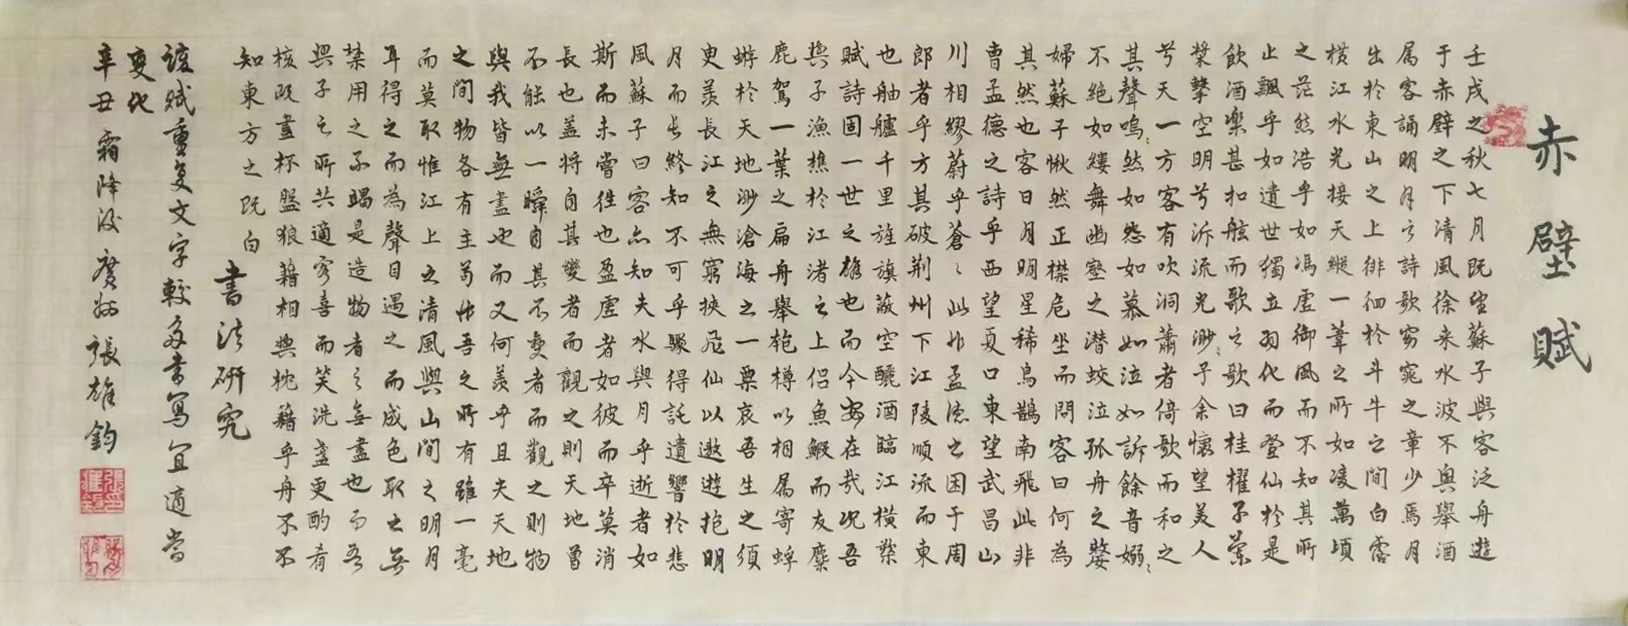 赤壁賦
壬戌之秋七月既望蘇子與客泛舟遊
于赤壁之下清風徐来水波不興舉酒
属客誦明月之詩歌窈窕之章少焉月
出於東山之上徘徊於斗牛之間白露
橫江水光接天縱一葦之所如凌萬頃
之茫然浩乎如馮虛御風而不知其所
止飄乎如遺世獨立羽化而登仙於是
飲酒樂甚扣舷而歌之歌曰桂櫂兮蘭
槳擊空明兮泝流光渺〻兮余懷望美人
兮天一方客有吹洞蕭者倚歌而和之
其聲嗚〻然如怨如慕如泣如訴餘音嫋〻
不絕如縷舞幽壑之潛蛟泣孤舟之嫠
婦蘇子愀然正襟危坐而問客曰何為
其然也客曰月明星稀烏鵲南飛此非
曹孟德之詩乎西望夏口東望武昌山
川相繆蔚乎蒼〻此非孟德之困于周
郎者乎方其破荆州下江陵順流而東
也舳艫千里旌旗蔽空釃酒臨江橫槊
賦詩固一世之雄也而今安在哉况吾
與子漁樵於江渚之上侣魚鰕而友麋
鹿駕一葉之扁舟舉匏樽以相属寄蜉
蝣於天地渺滄海之一粟哀吾生之須
臾羨長江之無窮挾飛仙以遨遊抱明
月而長終知不可乎驟得託遺響於悲
風蘇子曰客亦知夫水與月乎逝者如
斯而未嘗往也盈虛者如彼而卒莫消
長也蓋將自其變者而觀之則天地曾
不能以一瞬自其不變者而觀之則物
與我皆無盡也而又何羨乎且夫天地
之間物各有主苟非吾之所有雖一毫
而莫取惟江上之清風與山間之明月
耳得之而為聲目遇之而成色取之無
禁用之不竭是造物者之無盡也而吾
與子之所共適客喜而笑洗盞更酌肴
核既盡杯盤狼藉相與枕藉乎舟不不
知東方之既白
書法研究
該賦重复文字較多書寫宜適當
變化
辛丑霜降後廣州張雄鈞